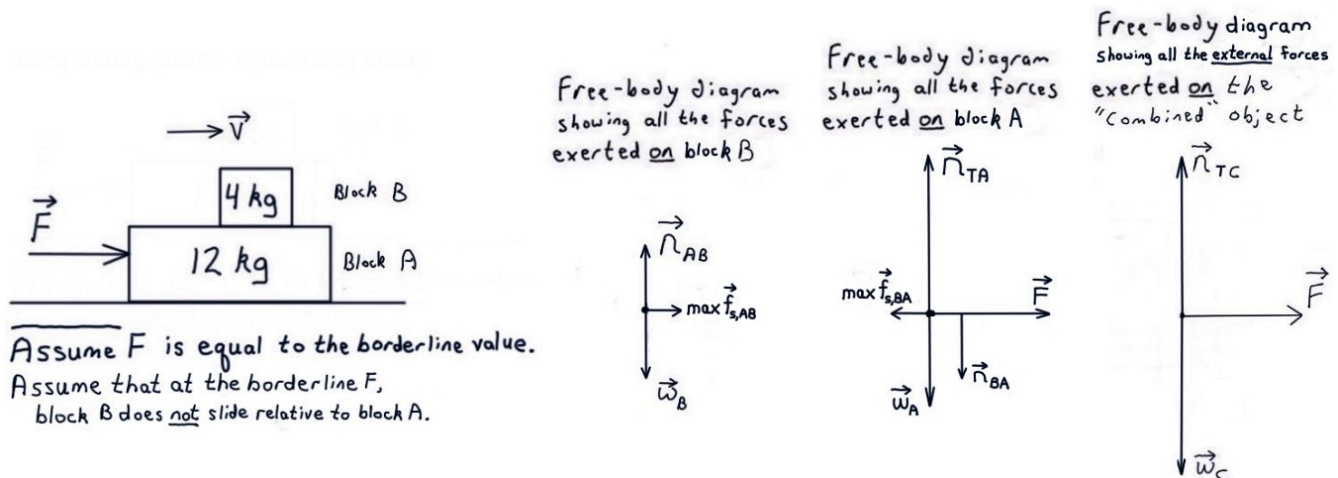 → v
F
4 kg
Block B
12 kg
Block A
Assume F is equal to the borderline value.
Assume that at the borderline F,
block B does not slide relative to block A.
Free-body diagram
showing all the forces
exerted on block B
n AB
max f s,AB
w B
Free-body diagram
showing all the forces
exerted on block A
n TA
max f s,BA
F
n BA
w A
Free-body diagram
showing all the external forces
exerted on the
"Combined" object
n TC
F
w C